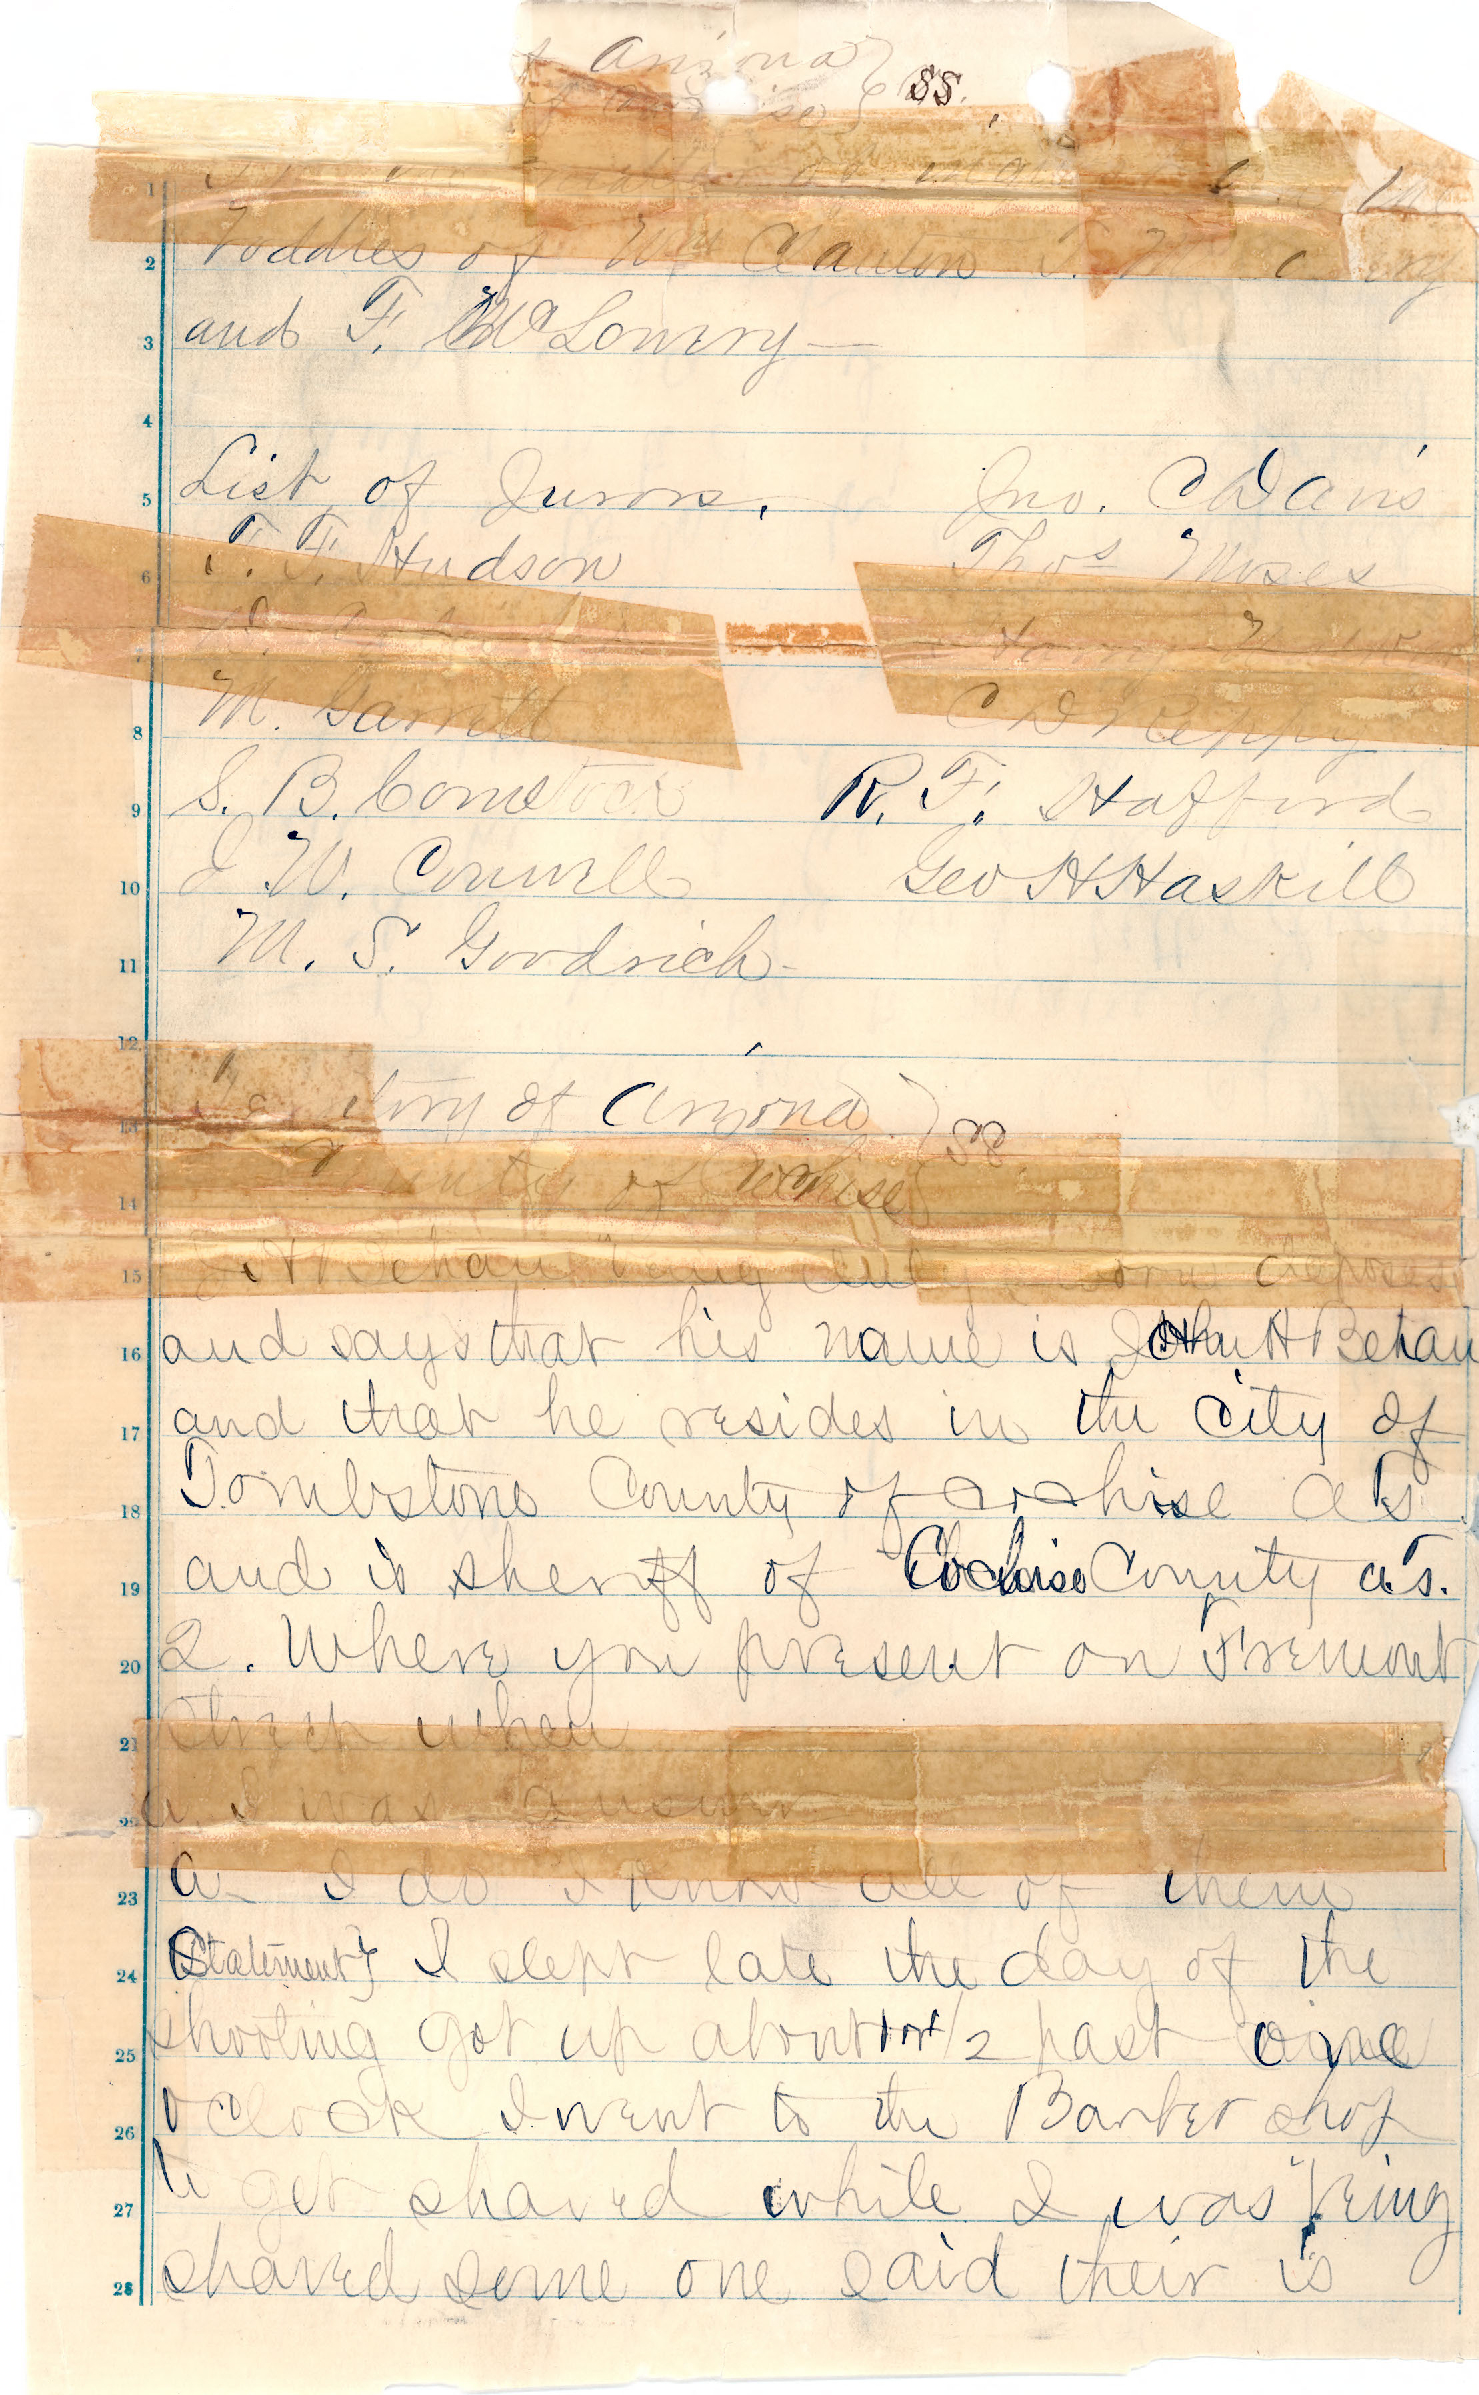 of Arizona } ss.
of Cochise
In the matter of
boddies of Wm Clanton T. M
and F. McLowery—
List of Jurors.    Jno. C Davis
T. F. Hudson    Thos Moses
Harry Walker
M. Garrett    C D Reppy
S. B. Comstock    R. F. Hafford
J W. Conwell    Geo H Haskill
M. S. Goodrich
Territory of Arizona } ss
County of Cochise
J. H Behan being duly sworn deposes
and says that his name is John H Behan
and that he resides in the city of
Tombstone County of Cochise A T
and is sheriff of Cochise County A.T.
Q. Where you present on Fremont
Street when
A. I was answer
A. I do I know all of them
Statement} I slept late the day of the
shooting got up about 1 or 1/2 past one
oclock I went to the Barber shop
to get shaved while I was being
shaved some one said their is